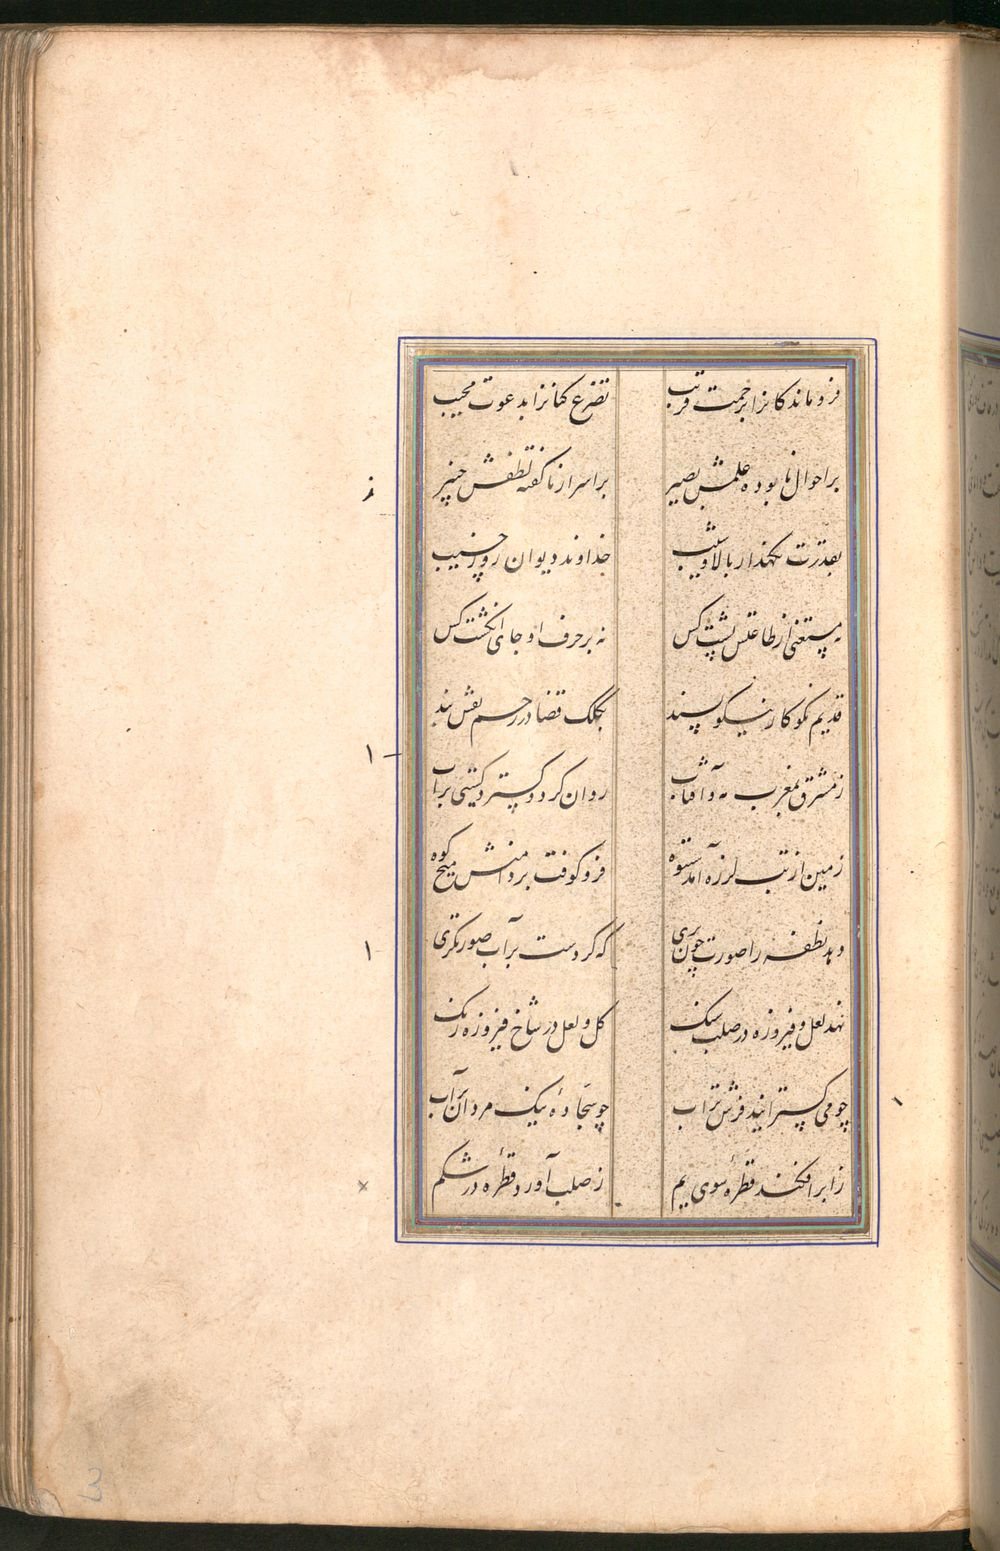 فروماندکانرا برحمت قریب تضرع کنانرا بدعوت مجیب
بر احوال نابوده علمش بصیر بر اسرار ناکفته لطفش خبیر
بقدرت نکهدار بالا و شیب خداوند دیوان روز حسیب
نه مستغنی از طاعتش پشت کس نه بر حرف او جای انکشت کس
قدیم نکوکار نیکو پسند بکلک قضا در رحم نقش بند
ز مشرق بمغرب مه و آفتاب روان کرد و کسترد کیتی بر آب
زمین از تب لرزه آمد ستوه فرو کوفت بر دامنش میخ کوه
دهد نطفه را صورت چون پری که کردست بر آب صورتکری
نهد لعل و فیروزه در صلب سنک کل و لعل در شاخ فیروزه رنک
چو می کسترانید فرش تراب چو سجادهٔ نیک مردان بر آب
ز ابر افکند قطرهٔ سوی یم ز صلب آورد قطرهٔ در شکم
3